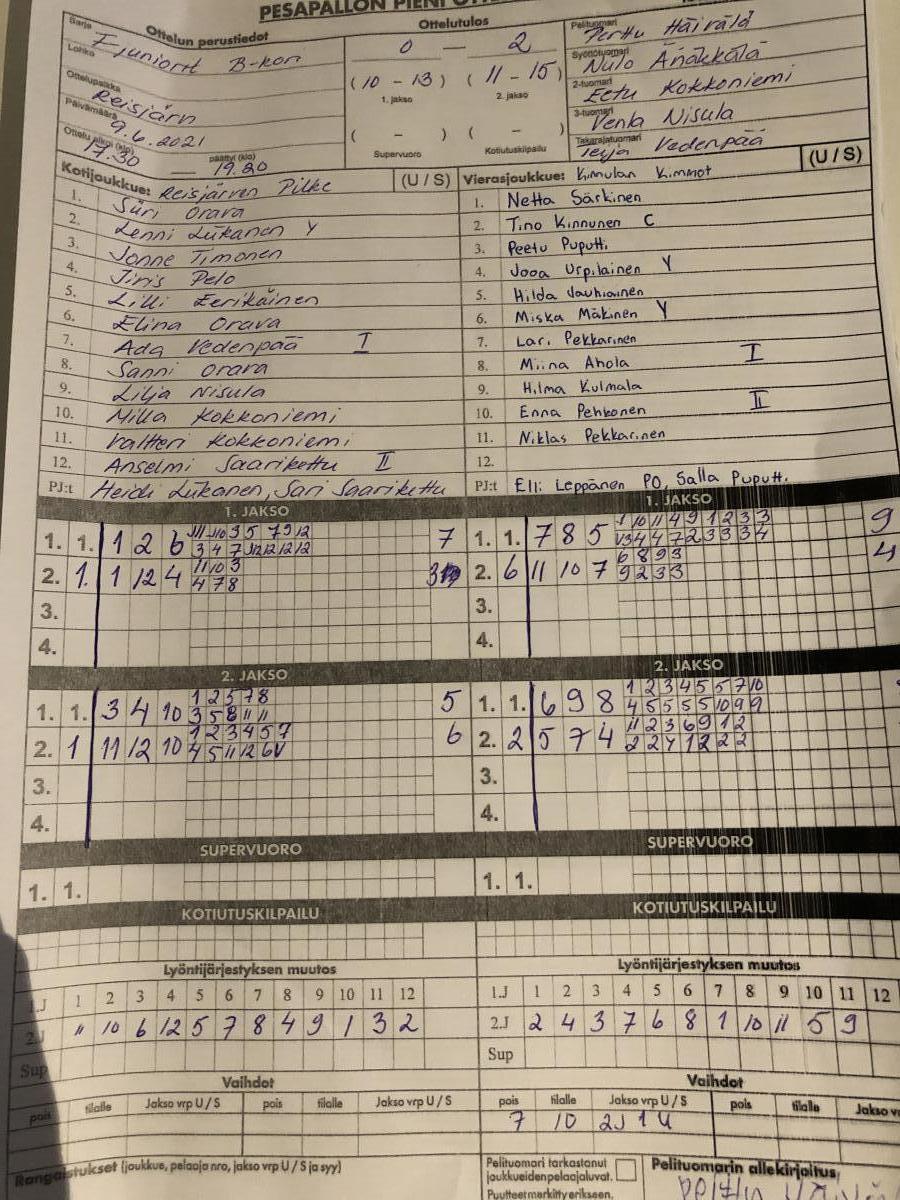 PESÄPALLON PIENI
Sarja Ottelun perustiedot
Ottelutulos
Lohko
B-
0 — 2
(10 - 13) (11 - 15)
1. jakso 2. jakso
( - ) ( - )
Supervuoro Kotiutuskilpailu
Ottelupaikka
Päivämäärä
9.6.2021
Ottelu alkoi (klo) päättyi (klo)
17.30 — 19.20
Pelituomari
Perttu Häirälä
Syöttötuomari
2-tuomari
Eetu Kokkoniemi
3-tuomari
Venla Nisula
Takarajatuomari
Vedenpää
Kotijoukkue: Reisjärven Pilke (U / S)
1. Siiri Orava
2. Lenni Liikanen Y
3. Jonne Timonen
4. Jiris Pelo
5. Lilli Eerikäinen
6. Elina Orava
7. Ada Vedenpää I
8. Sanni Orava
9. Lilja Nisula
10. Milla Kokkoniemi
11. Valtteri Kokkoniemi
12. Anselmi Saarikettu II
PJ:t Heidi Liikanen, Sari Saarikettu
Vierasjoukkue: Kimmot (U / S)
1. Netta Särkinen
2. Tino Kinnunen C
3. Peetu Puputti
4. Jooa Urpilainen Y
5. Hilda Jauhiainen
6. Miska Mäkinen Y
7. Lari Pekkarinen
8. Miina Ahola I
9. Hilma Kulmala
10. Enna Pehkonen II
11. Niklas Pekkarinen
12.
PJ:t Elli Leppänen PO, Salla Puputti
1. JAKSO
1. 1. 1 2 6 7
2. 1. 1 12 4 11 10 3 3
4 7 8
3.
4.
1. JAKSO
1. 1. 7 8 5 9
2. 6 11 10 7 6 8 9 3 4
9 2 3 3
3.
4.
2. JAKSO
1. 1. 3 4 10 1 2 5 7 8 5
3 5 8 11 11
2. 1 11 12 10 1 2 3 4 5 7 6
4 5 11 12 6 V
3.
4.
2. JAKSO
1. 1. 6 9 8 1 2 3 4 5 5 7 10
4 5 5 5 5 10 9 9
2. 2 5 7 4 11 2 3 6 9 1 2
3.
4.
SUPERVUORO
1. 1.
SUPERVUORO
1. 1.
KOTIUTUSKILPAILU
KOTIUTUSKILPAILU
Lyöntijärjestyksen muutos
1.J 1 2 3 4 5 6 7 8 9 10 11 12
2.J 11 10 6 12 5 7 8 4 9 1 3 2
Sup
Lyöntijärjestyksen muutos
1.J 1 2 3 4 5 6 7 8 9 10 11 12
2.J 2 4 3 7 6 8 1 10 11 5 9
Sup
Vaihdot
pois tilalle Jakso vrp U / S pois tilalle Jakso vrp U / S
Vaihdot
pois tilalle Jakso vrp U / S pois tilalle Jakso
7 10 2J 1 U
Rangaistukset (joukkue, pelaaja nro, jakso vrp U / S ja syy)
Pelituomari tarkastanut
joukkueidenpelaajaluvat.
Puutteet merkitty erikseen.
Pelituomarin allekirjoitus